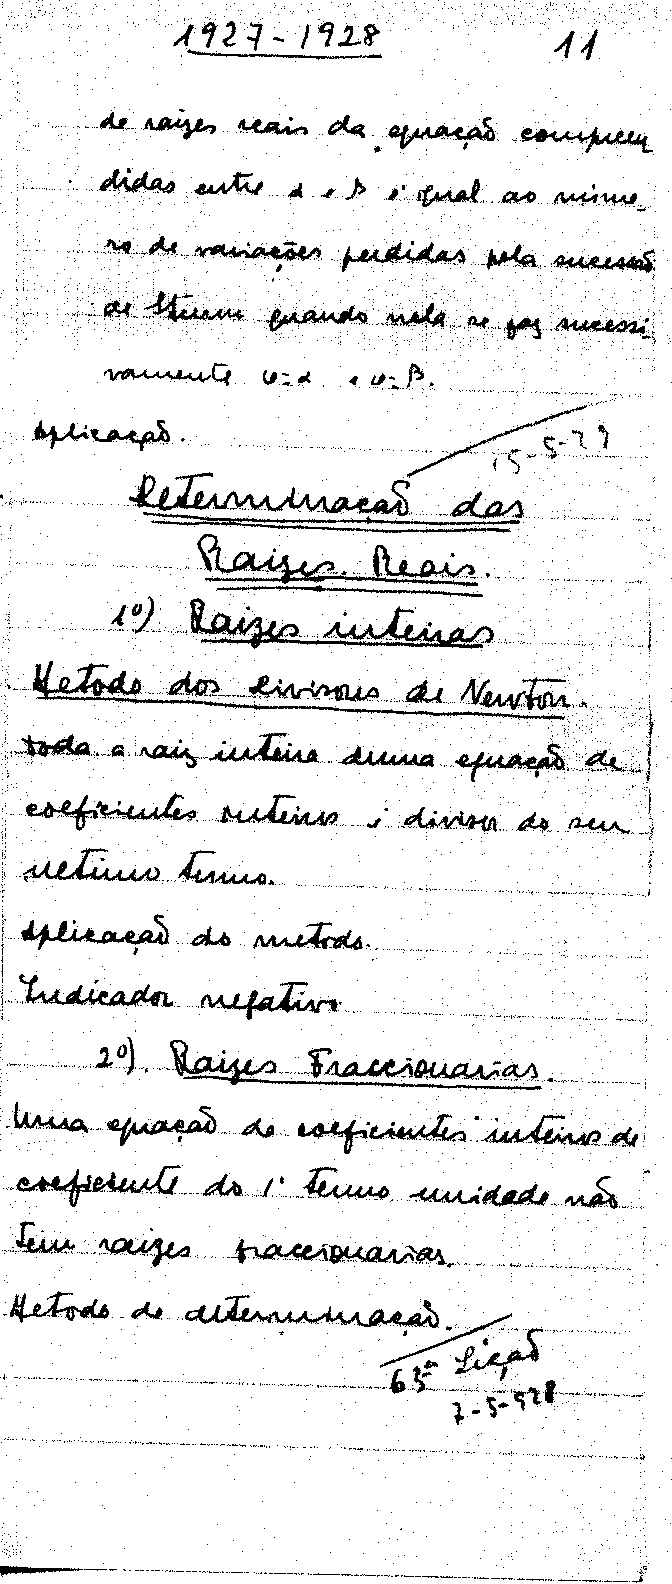 1927-1928 11
de raizes reais da equação compreen
didas entre α e β é igual ao nume_
ro de variações perdidas pela sucessão
de Sturm quando nela se faz sucessi
vamente = α e = β.
Aplicação.
15-5-29
Determinação das
Raizes Reais.
1º) Raizes inteiras
Metodo dos divisores de Newton.
toda a raiz inteira duma equação de
coeficientes inteiros é divisor do seu
ultimo termo.
Aplicação do metodo.
Indicador negativo
2º). Raizes Fraccionarias.
Uma equação de coeficientes inteiros de
coeficiente do 1º termo unidade não
tem raizes fraccionarias.
Metodo de determinação.
63ª Lição
7-5-928